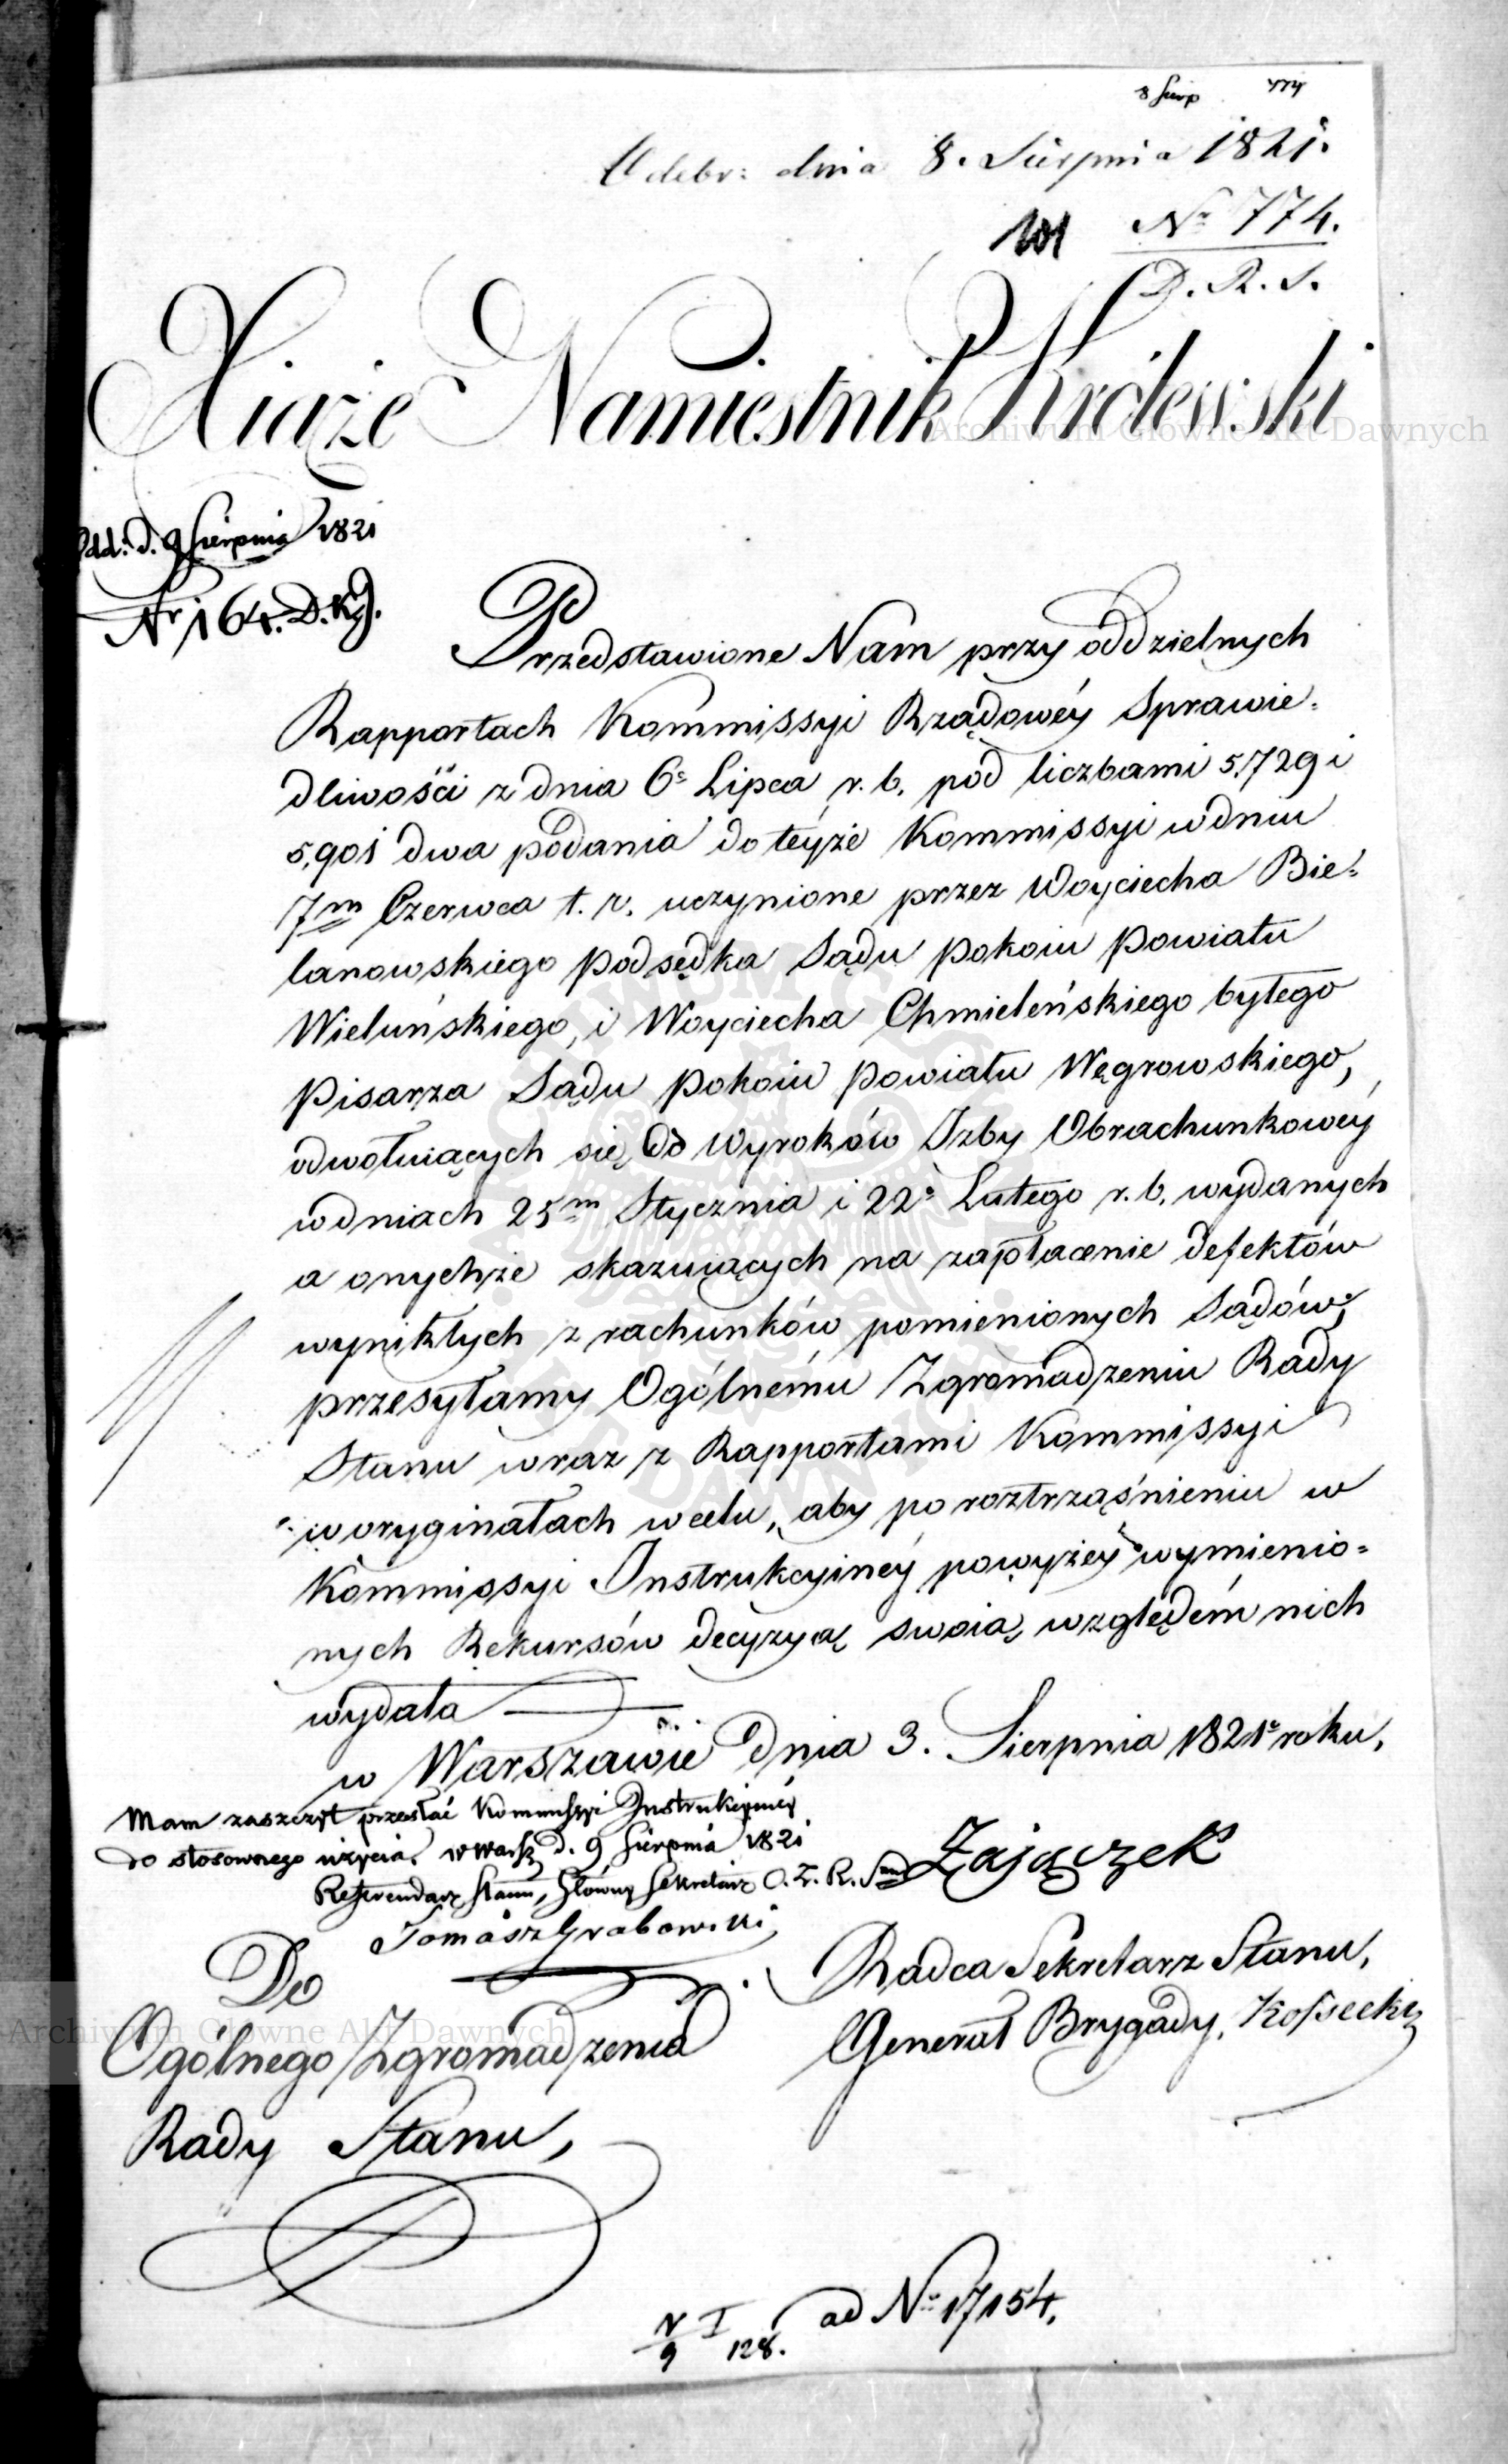 8 Sierp 774
Odebr: dnia 8. Sierpnia 1821.
101 Nr 774.
D. R. S.
Xiąże Namiestnik Królewski
Odd: d. 9 Sierpnia 1821
Nr 164. D.K.J.
Przedstawione Nam przy oddzielnych
Rapportach Kommissyi Rządowéy Sprawie=
dliwości z dnia 6o Lipca r. b. pod liczbami 5,729 i
5,901 dwa podania do téyże Kommissyi w dniu
7m Czerwca t. r. uczynione przez Woyciecha Bie=
lanowskiego Podsędka Sądu Pokoiu Powiatu
Wieluńskiego, i Woyciecha Chmieleńskiego byłego
Pisarza Sądu Pokoiu Powiatu Węgrowskiego,
odwołuiących się od Wyroków Izby Obrachunkowéy
w dniach 25m Stycznia i 22o Lutego r. b. wydanych
a onychże skazuiących na zapłacenie defektów
wynikłych z rachunków pomienionych Sądów,
przesyłamy Ogólnému Zgromadzeniu Rady
Stanu wraz z Rapportami Kommissyi
w oryginałach w celu, aby po roztrząśnieniu w
Kommissyi Instrukcyinéy powyżéy wymienio=
nych Rekursów decyzyą swoią względém nich
wydała
w Warszawie dnia 3. Sierpnia 1821o roku.
Mam zaszczyt przesłać Kommissyi Instrukcyinéy
do stosownego użycia. w Warsz d. 9 Sierpnia 1821
Referendarz Stanu, Główny Sekretarz O. Z. R. Stanu
Tomasz Grabowski
Zajączek
Radca Sekretarz Stanu,
Generał Brygady, Kossecki
Do
Ogólnego Zgromadzenia
Rady Stanu,
V I
9 128.
ad Nr 17154.
Archiwum Główne Akt Dawnych
Archiwum Główne Akt Dawnych
ARCHIWUM GŁÓWNE AKT DAWNYCH